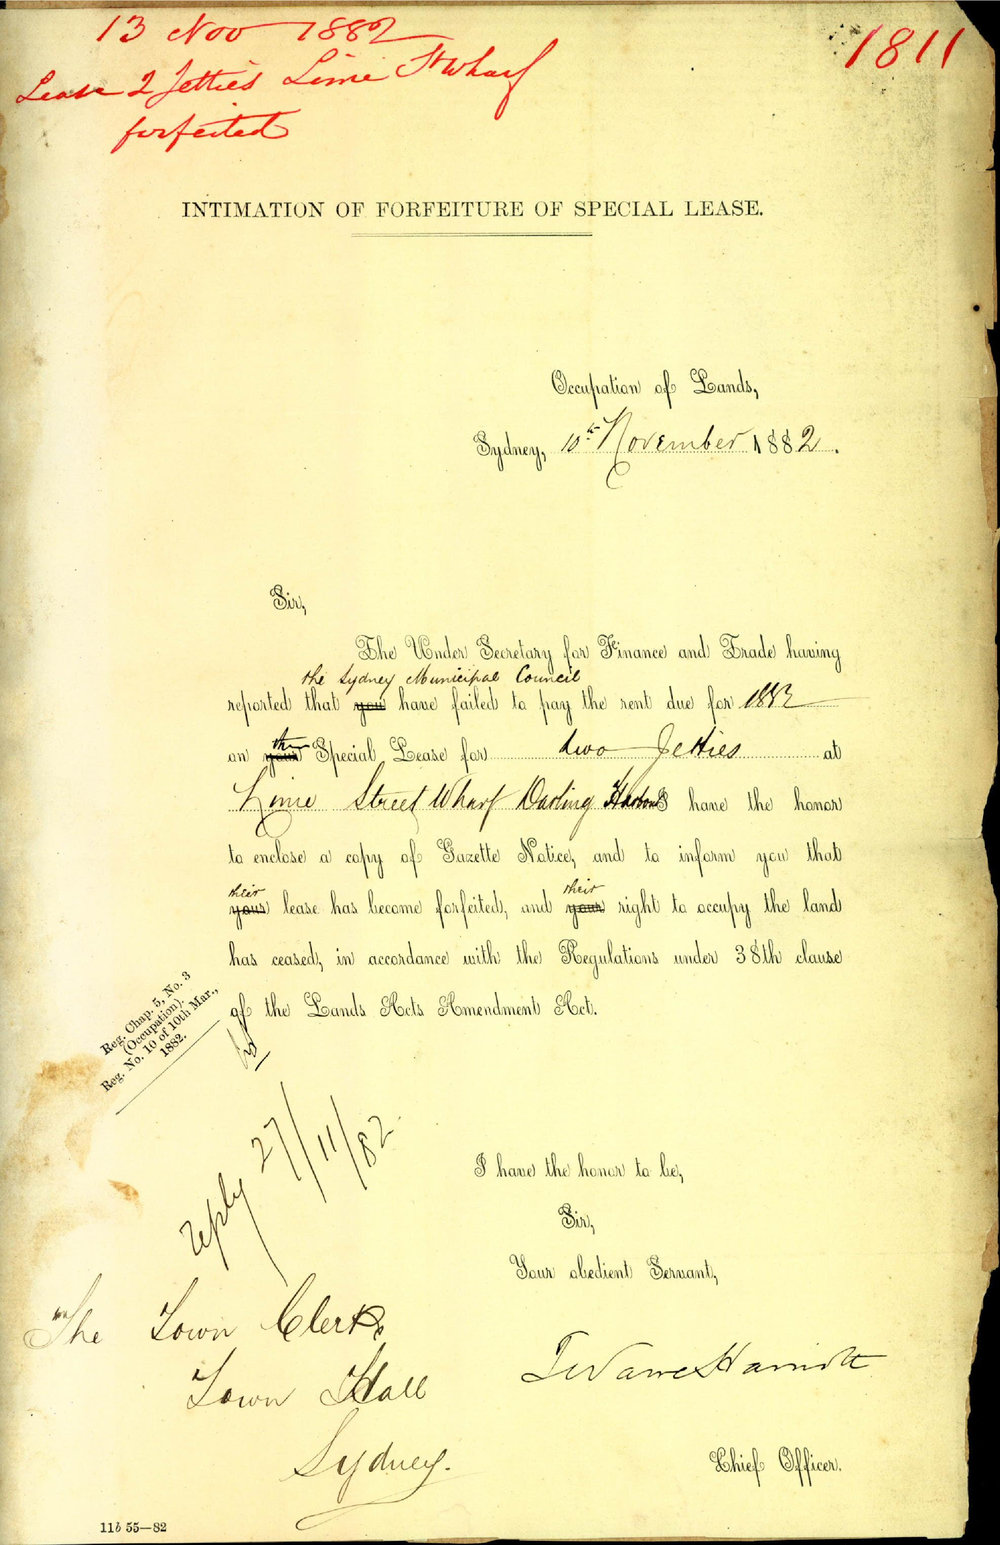 13 Nov 1882
1811
Lease 2 Jetties Lime St Wharf
forfeited
INTIMATION OF FORFEITURE OF SPECIAL LEASE.
Occupation of Lands,
Sydney, 10th November 1882.
Sir,
The Under Secretary for Finance and Trade having
the Sydney Municipal Council
reported that you have failed to pay the rent due for 1882
the
on your Special Lease for two Jetties at
Lime Street Wharf Darling Harbour I have the honor
to enclose a copy of Gazette Notice, and to inform you that
their their
your lease has become forfeited, and your right to occupy the land
has ceased, in accordance with the Regulations under 38th clause
of the Lands Acts Amendment Act.
Reg. Chap. 5, No. 3
(Occupation).
Reg. No. 10 of 10th Mar.,
1882.
reply 27/11/82
I have the honor to be,
Sir,
Your obedient Servant,
The Town Clerk
Town Hall
Sydney.
Chief Officer.
11b 55—82